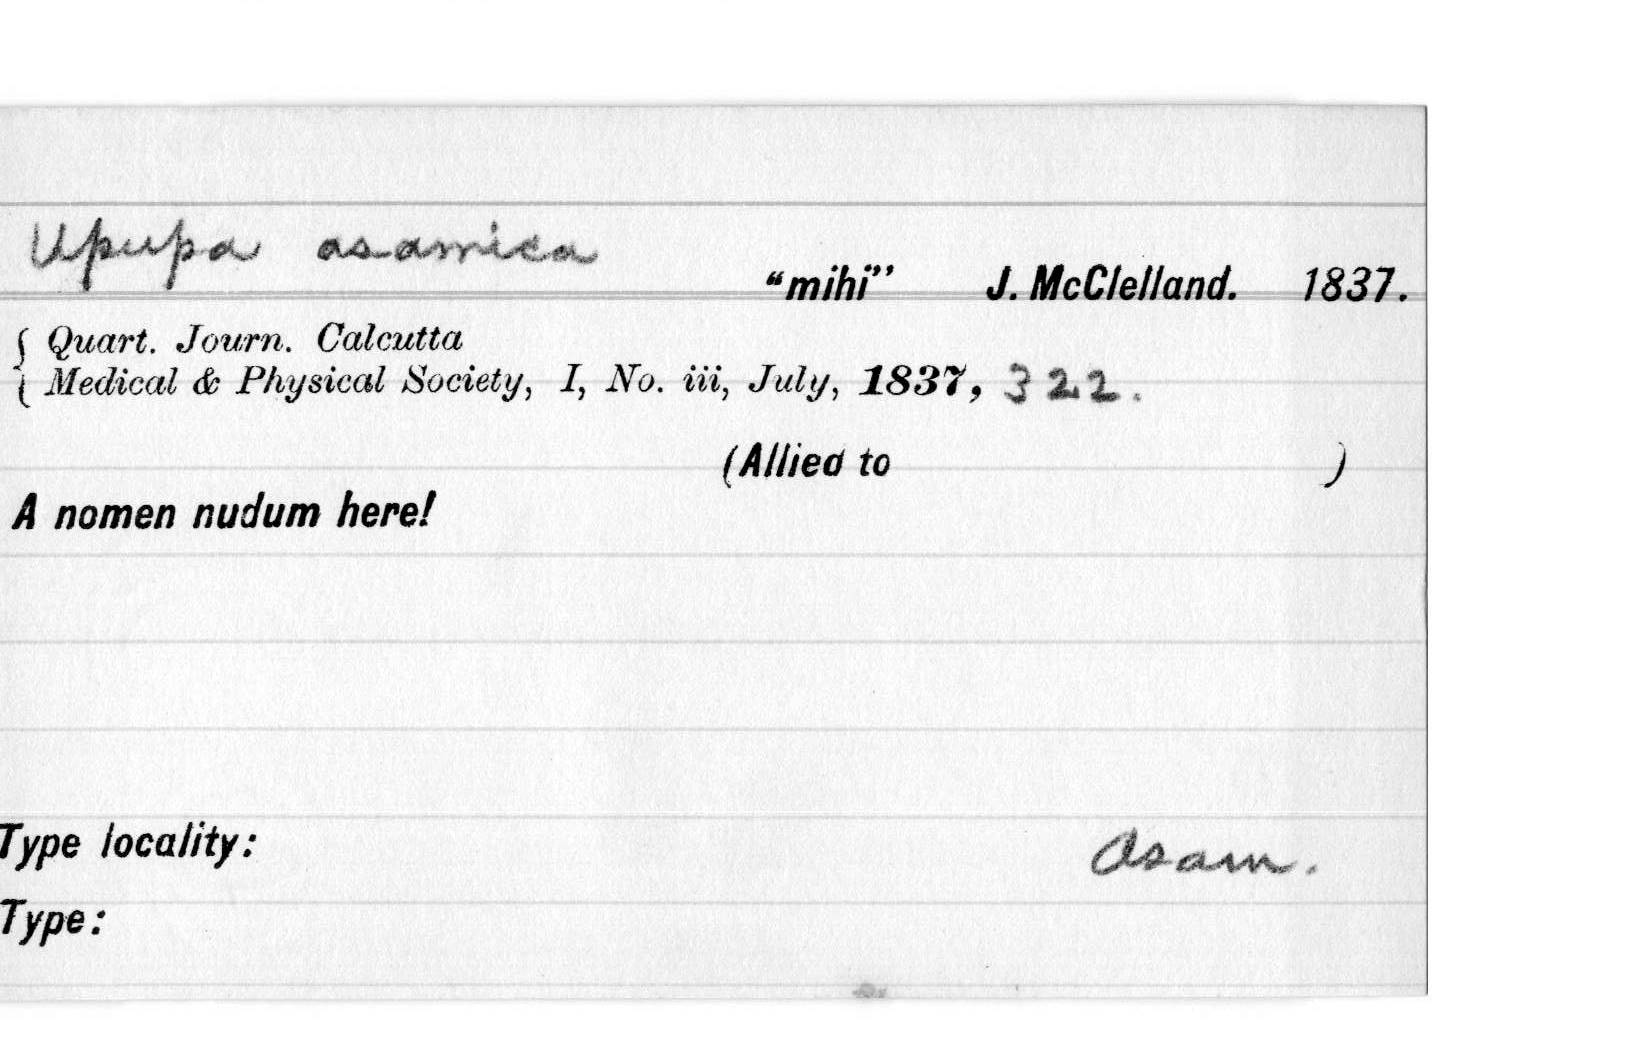 Upupa asamica
“mihi” J. McClelland. 1837.
Quart. Journ. Calcutta
Medical & Physical Society, I, No. iii, July, 1837, 322.
(Allied to )
A nomen nudum here!
Type locality: Asam.
Type: